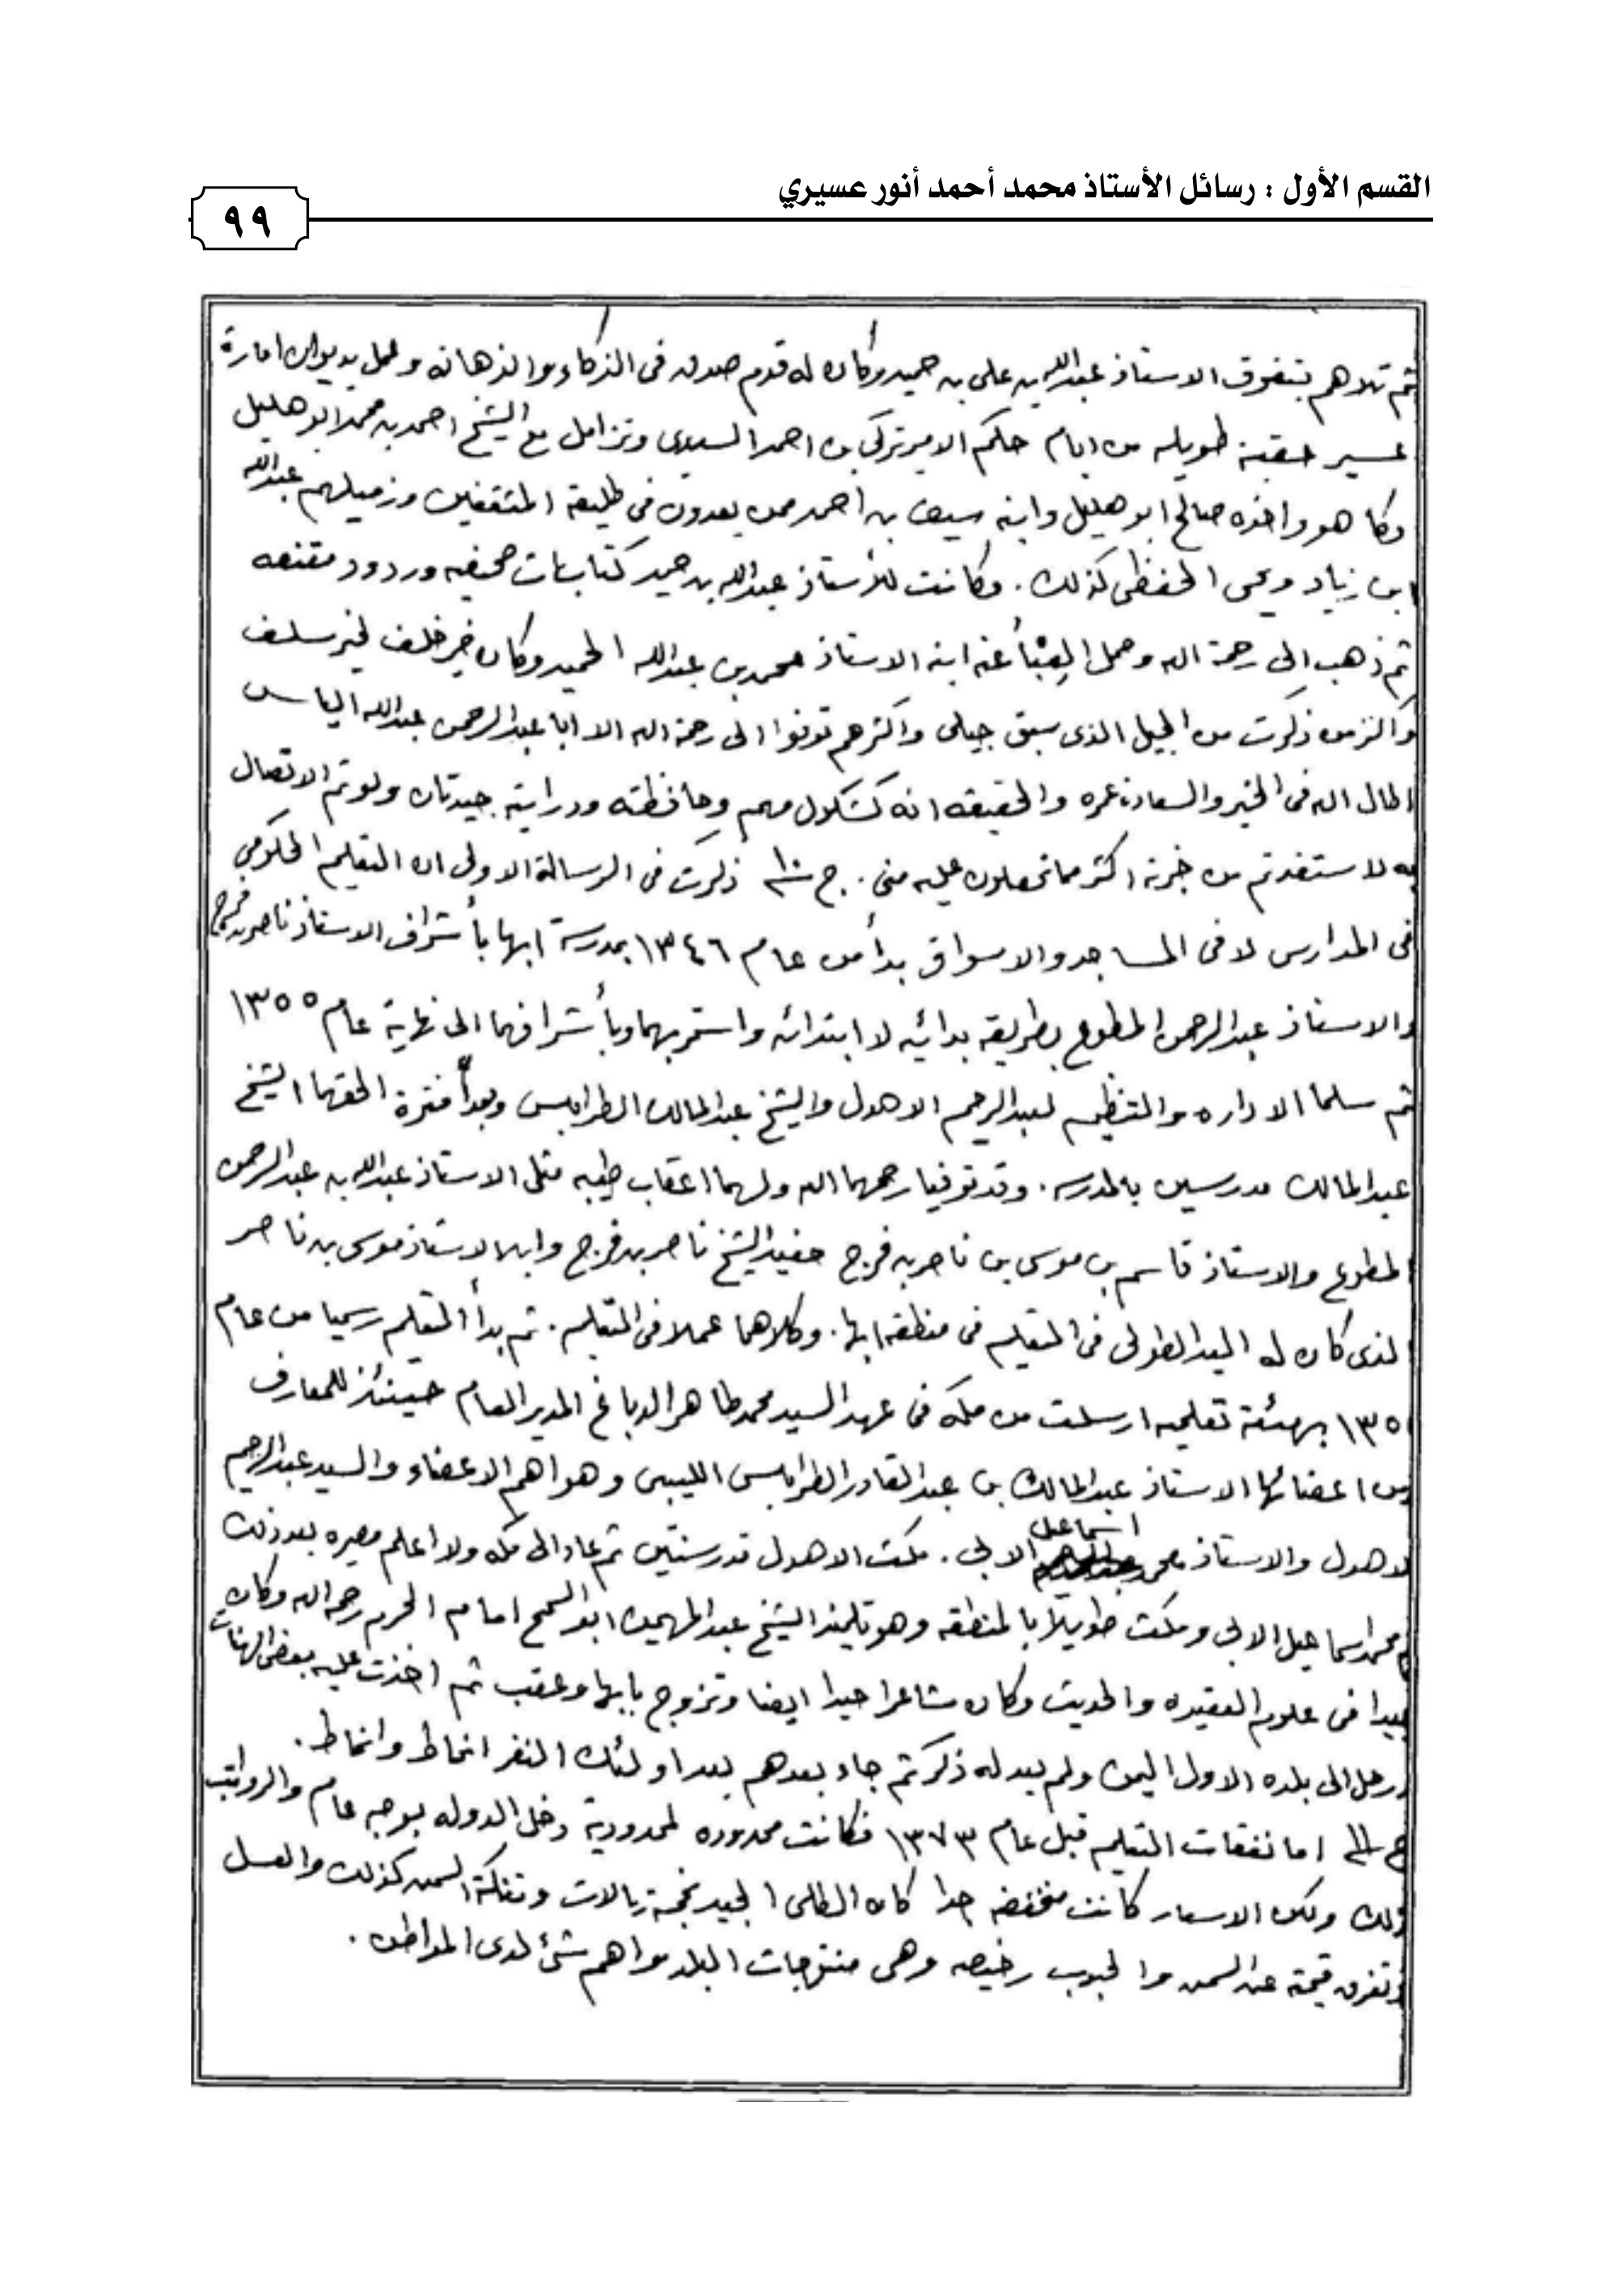 القسم الأول : رسائل الأستاذ محمد أحمد أنور عسيري
٩٩
ثم تلاهم بتفوق الاستاذ عبدالله بن علي بن حميد وكان له قدم صدق فى الذكاء والذهانه وعمل بديوان امارة
عسير حقبة طويله من ايام حكم الامير تركي بن احمد السديري وتزامل مع الشيخ احمد بن محمد ابوهليل
وكا هو واخوه صالح ابوهليل وابنه سيف بن احمد ممن يعدون فى طليعة المثقفين وزميلهم عبدالله
ابن زياد ويحى الحفظى كذلك . وكانت للأستاذ عبدالله بن حميد كتابات صحفيه وردود مقنعه
ثم ذهب الى رحمة الله وحمل العبْأ عنه ابنه الاستاذ محمد بن عبدالله الحميد وكان خير خلف لخير سلف
ذكرت من الجيل الذى سبق جيلى واكثرهم توفوا الى رحمة الله الا ابا عبدالرحمن عبدالله الياس
اطال الله فى الخير والسعادة عمره والحقيقه انه كشكول مهم وحافظته ودرايته جيدتان ولو تم الاتصال
به لاستفدتم من خبرته اكثر مما تحصلون عليه منى . ج ١٠ ذكرت فى الرسالة الاولى ان التعليم الحكومي
فى المدارس لا فى المساجد والاسواق بدأ من عام ١٣٤٦ بمدرسة ابها بأشراف الاستاذ ناصر بن فرج
والاستاذ عبدالرحمن المطوع بطريقه بدائيه لا ابتدائه واستمر بهما وبأشرافهما الى نهاية عام ١٣٥٥
ثم سلما الاداره والتنظيم لعبدالرحيم الاهدل والشيخ عبدالمالك الطرابلسى وبعد فترة الحقهما الشيخ
عبدالمالك مدرسين بالمدرسه . وقد توفيا رحمهما الله ولهما اعقاب طيبه مثل الاستاذ عبدالله بن عبدالرحمن
المطوع والاستاذ قاسم بن موسى بن ناصر بن فرج حفيد الشيخ ناصر بن فرج وابن الاستاذ موسى بن ناصر
الذى كان له اليد الطولى فى التعليم فى منطقه ابها . وكلاهما عملا فى التعليم . ثم بدأ التعليم رسميا من عام
١٣٥ بهيئة تعليميه ارسلت من مكه فى عهد السيد محمد طاهر الدباغ المدير العام حينئذ للمعارف
ومن اعضائها الاستاذ عبدالمالك بن عبدالقادر الطرابلسى الليبى وهو اهم الاعضاء والسيد عبدالرحيم
الاهدل والاستاذ محمد اسماعيل الابى . مكث الاهدل قدر سنتين ثم عاد الى مكه ولا اعلم مصيره بعد ذلك
ثم محمد اسماعيل الابى ومكث طويلاً بالمنطقه وهو تلميذ الشيخ عبدالمهيمن ابوالسمح امام الحرم رحمه الله وكان
جيدا فى علوم العقيده والحديث وكان شاعرا جيدا ايضا وتزوج بابها وعقب ثم اخذت عليه بعض الهنات
ورحل الى بلده الاول اليمن ولم يعد له ذكر ثم جاء بعدهم بعد اولئك النفر انماط وانماط .
ج ١١ اما نفقات التعليم قبل عام ١٣٧٣ فكانت محدوده لمحدودية دخل الدوله بوجه عام والرواتب
كذلك ولكن الاسعار كانت منخفضه جدا كان الطلى الجيد بخمسة ريالات وتنكة السمن كذلك والعسل
لا تفرق قيمته عن السمن والحبوب رخيصه وهى منتوجات البلد واهم شئ لدى المواطن .